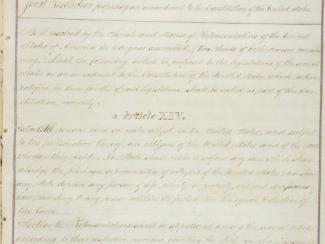 Joint Resolution proposing an amendment to the Constitution of the United States.
Be it resolved by the Senate and House of Representatives of the United
States of America in Congress assembled, two thirds of both Houses concurring,
That the following article be proposed to the legislatures of the several
States as an amendment to the Constitution of the United States, which when
ratified by three fourths of said legislatures shall be valid as part of the Con-
stitution, namely:
Article XIV.
Section 1. All persons born or naturalized in the United States, and subject
to the jurisdiction thereof, are citizens of the United States and of the State
wherein they reside. No State shall make or enforce any law which shall
abridge the privileges or immunities of citizens of the United States; nor shall
any State deprive any person of life, liberty, or property, without due process of
law; nor deny to any person within its jurisdiction the equal protection of
the laws.
Section 2. Representatives shall be apportioned among the several States
according to their respective numbers, counting the